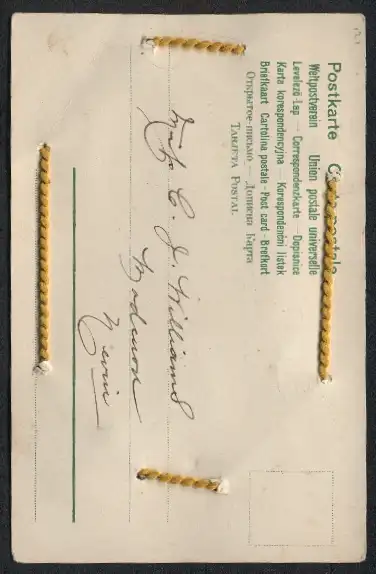 Postkarte
Weltpostverein Union postale universelle
Levelező-Lap — Correspondenzkarte — Dopisnice
Karta korespondencyjna — Korespondenční lístek
Briefkaart Cartolina postale - Post card - Brefkort
Открытое письмо — Дописна Карта
TARJETA POSTAL
C. J. Williams